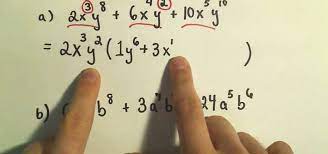 a) 2x³y⁸ + 6x⁴y² + 10x⁵y¹⁰
= 2x³y² ( 1y⁶ + 3x¹ )
b) b⁸ + 3a b + 24a⁵b⁶